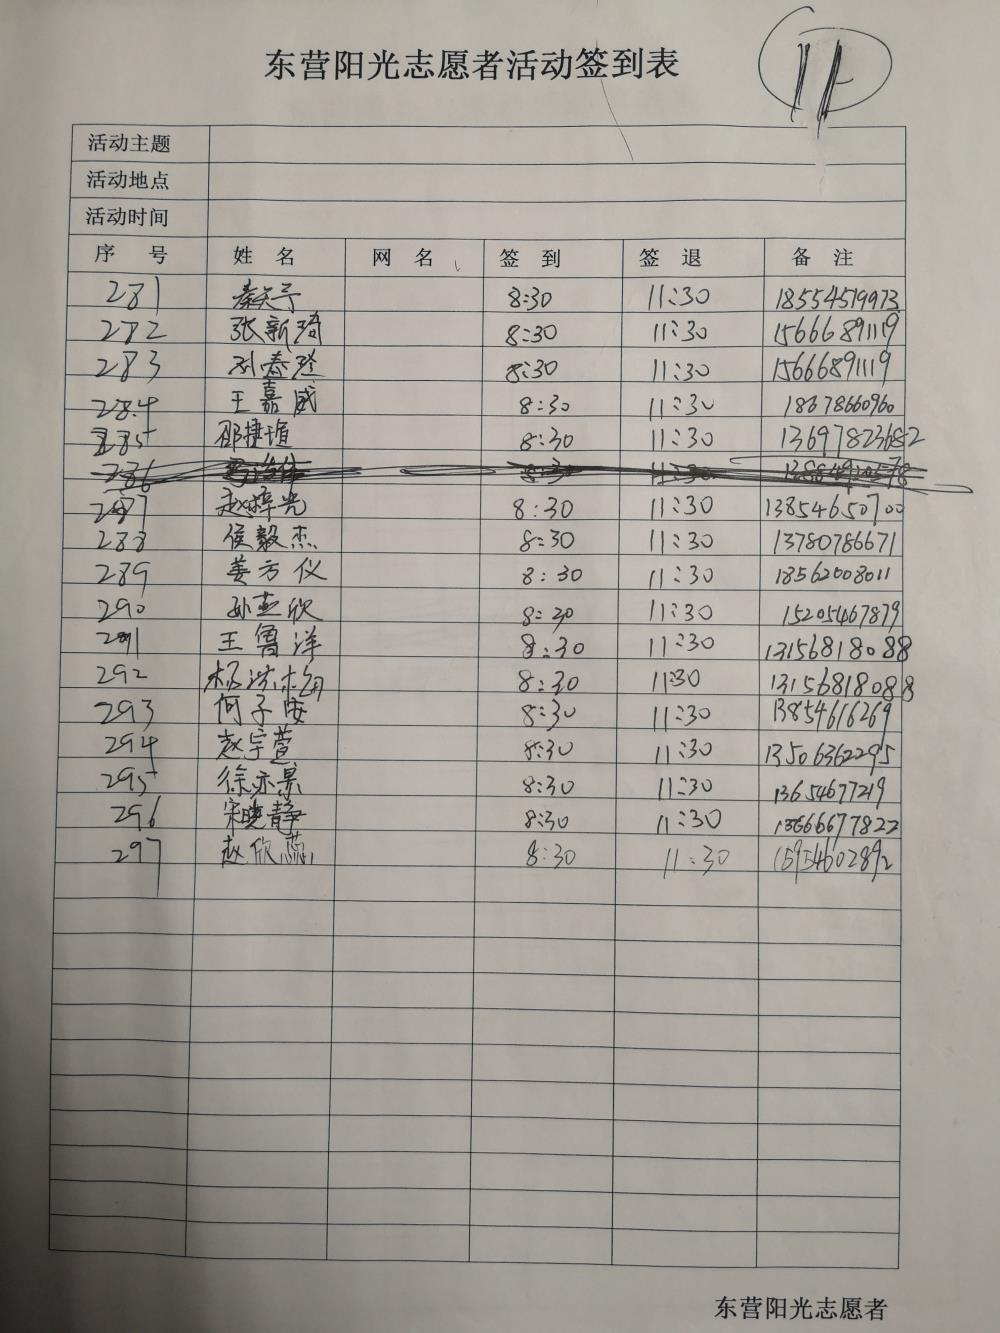 东营阳光志愿者活动签到表
11
活动主题
活动地点
活动时间
序 号 姓 名 网 名 签 到 签 退 备 注
281 秦天予 8:30 11:30 18554519973
282 张新琦 8:30 11:30 15666891119
283 孙春玲 8:30 11:30 15666891119
284 王嘉威 8:30 11:30 18678660960
285 邵捷埴 8:30 11:30 13697823682
286 8:30 11:30
287 赵梓光 8:30 11:30 13854650700
288 侯毅杰 8:30 11:30 13780786671
289 姜方仪 8:30 11:30 18562008011
290 孙燕欣 8:30 11:30 15205467879
291 王鲁洋 8:30 11:30 13156818088
292 杨洪梅 8:30 11:30 13156818088
293 何子安 8:30 11:30 13854616269
294 赵宇萱 8:30 11:30 13506362295
295 徐亦景 8:30 11:30 13654677219
296 宋晓静 8:30 11:30 13666677822
297 赵欣蕊 8:30 11:30 15954602892
东营阳光志愿者